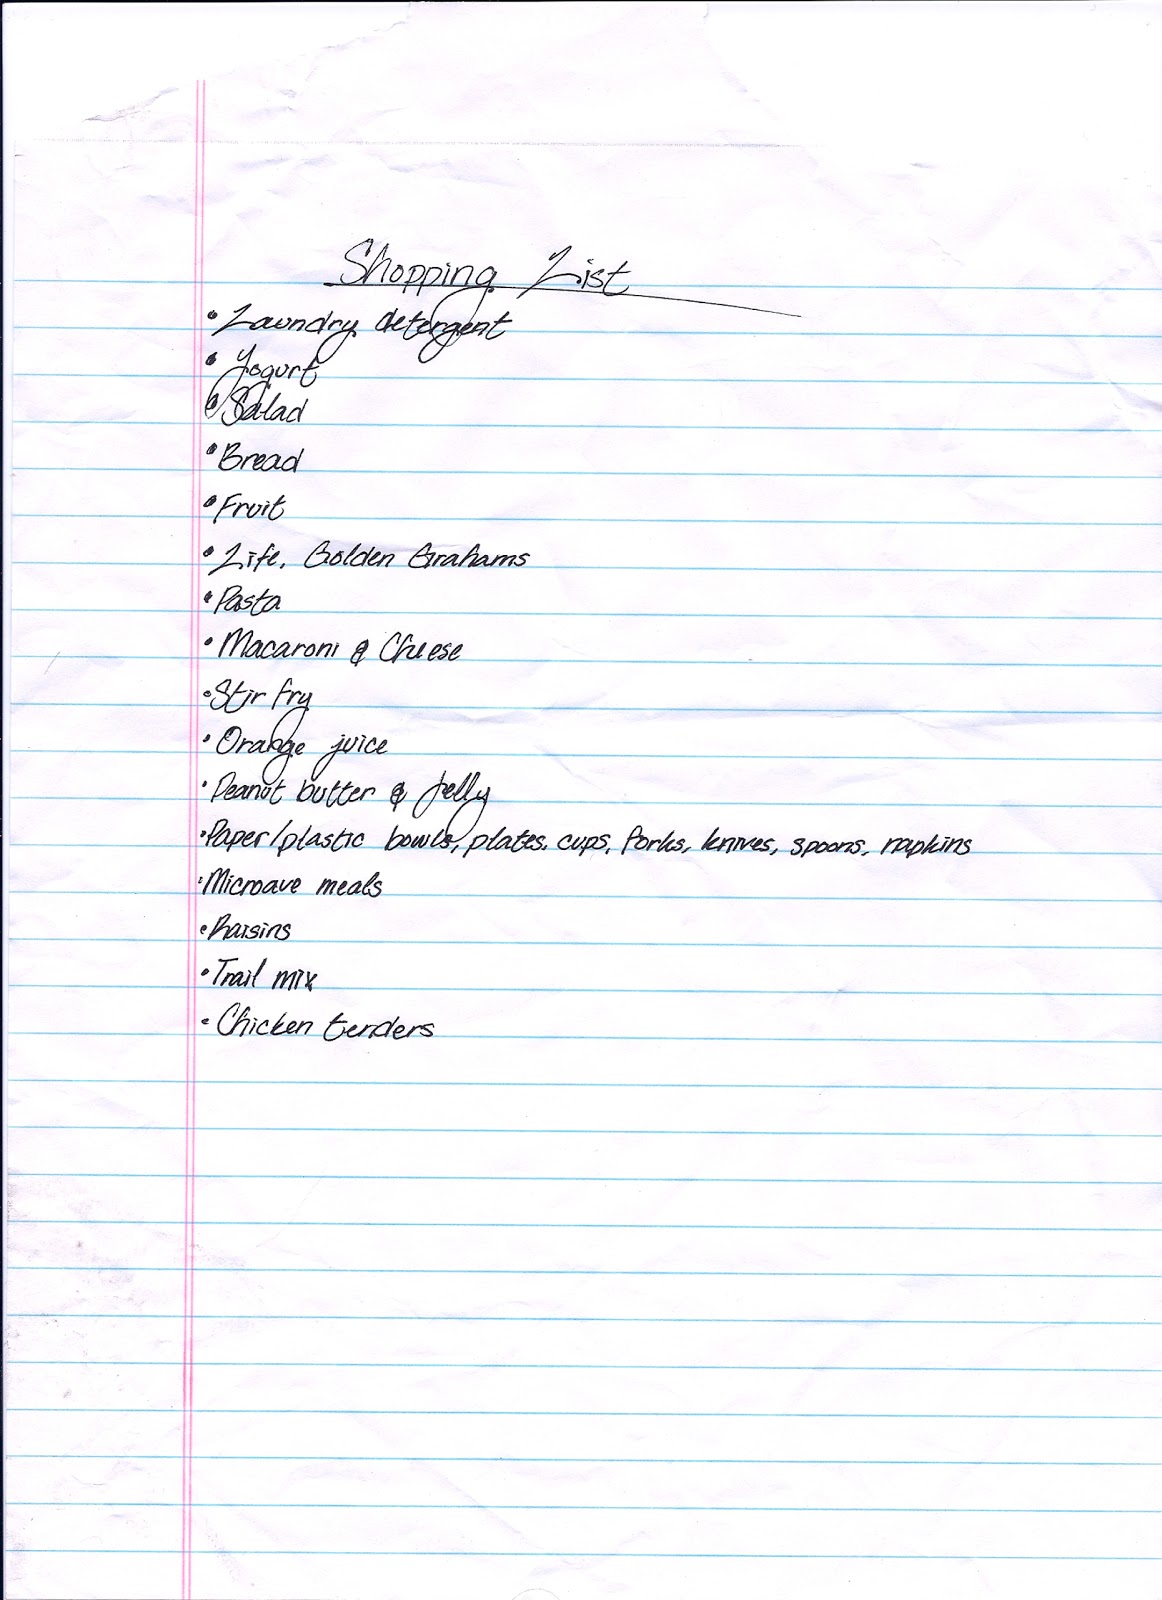 Shopping List
• Laundry detergent
• Yogurt
• Salad
• Bread
• Fruit
• Life, Golden Grahams
• Pasta
• Macaroni & Cheese
• Stir fry
• Orange juice
• Peanut butter & jelly
• Paper/plastic bowls, plates, cups, forks, knives, spoons, napkins
• Microave meals
• Raisins
• Trail mix
• Chicken tenders